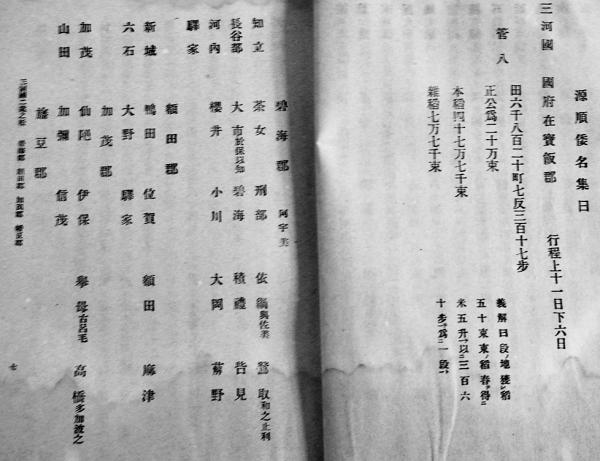 源順倭名集日
三河國 國府在寶飯郡 行程上十一日下六日
管八
田六千八百二十町七反三百十七步
正公爲二十万束
本稻四十七万七千束
雜稻七万七千束
義解曰段ノ地獲レ稻
五十束束ノ稻舂テ得ニ
米五升一以ニ三百六
十步一爲ニ一段一
碧海郡 阿宇美
知立 茶女 刑部 依網與佐美 鷲取和之止利
長谷部 大市於保以知 碧海 積禮 呰見
河內 櫻井 小川 大岡 薢野
驛家
額田郡
新城 鴨田 位賀 額田 麻津
六石 大野 驛家
加茂郡
加茂 仙陁 伊保 擧母古呂毛 高橋多加波之
山田 加禰 信茂
旛豆郡
三河國二葉之松 碧海郡 額田郡 加茂郡 幡豆郡
七